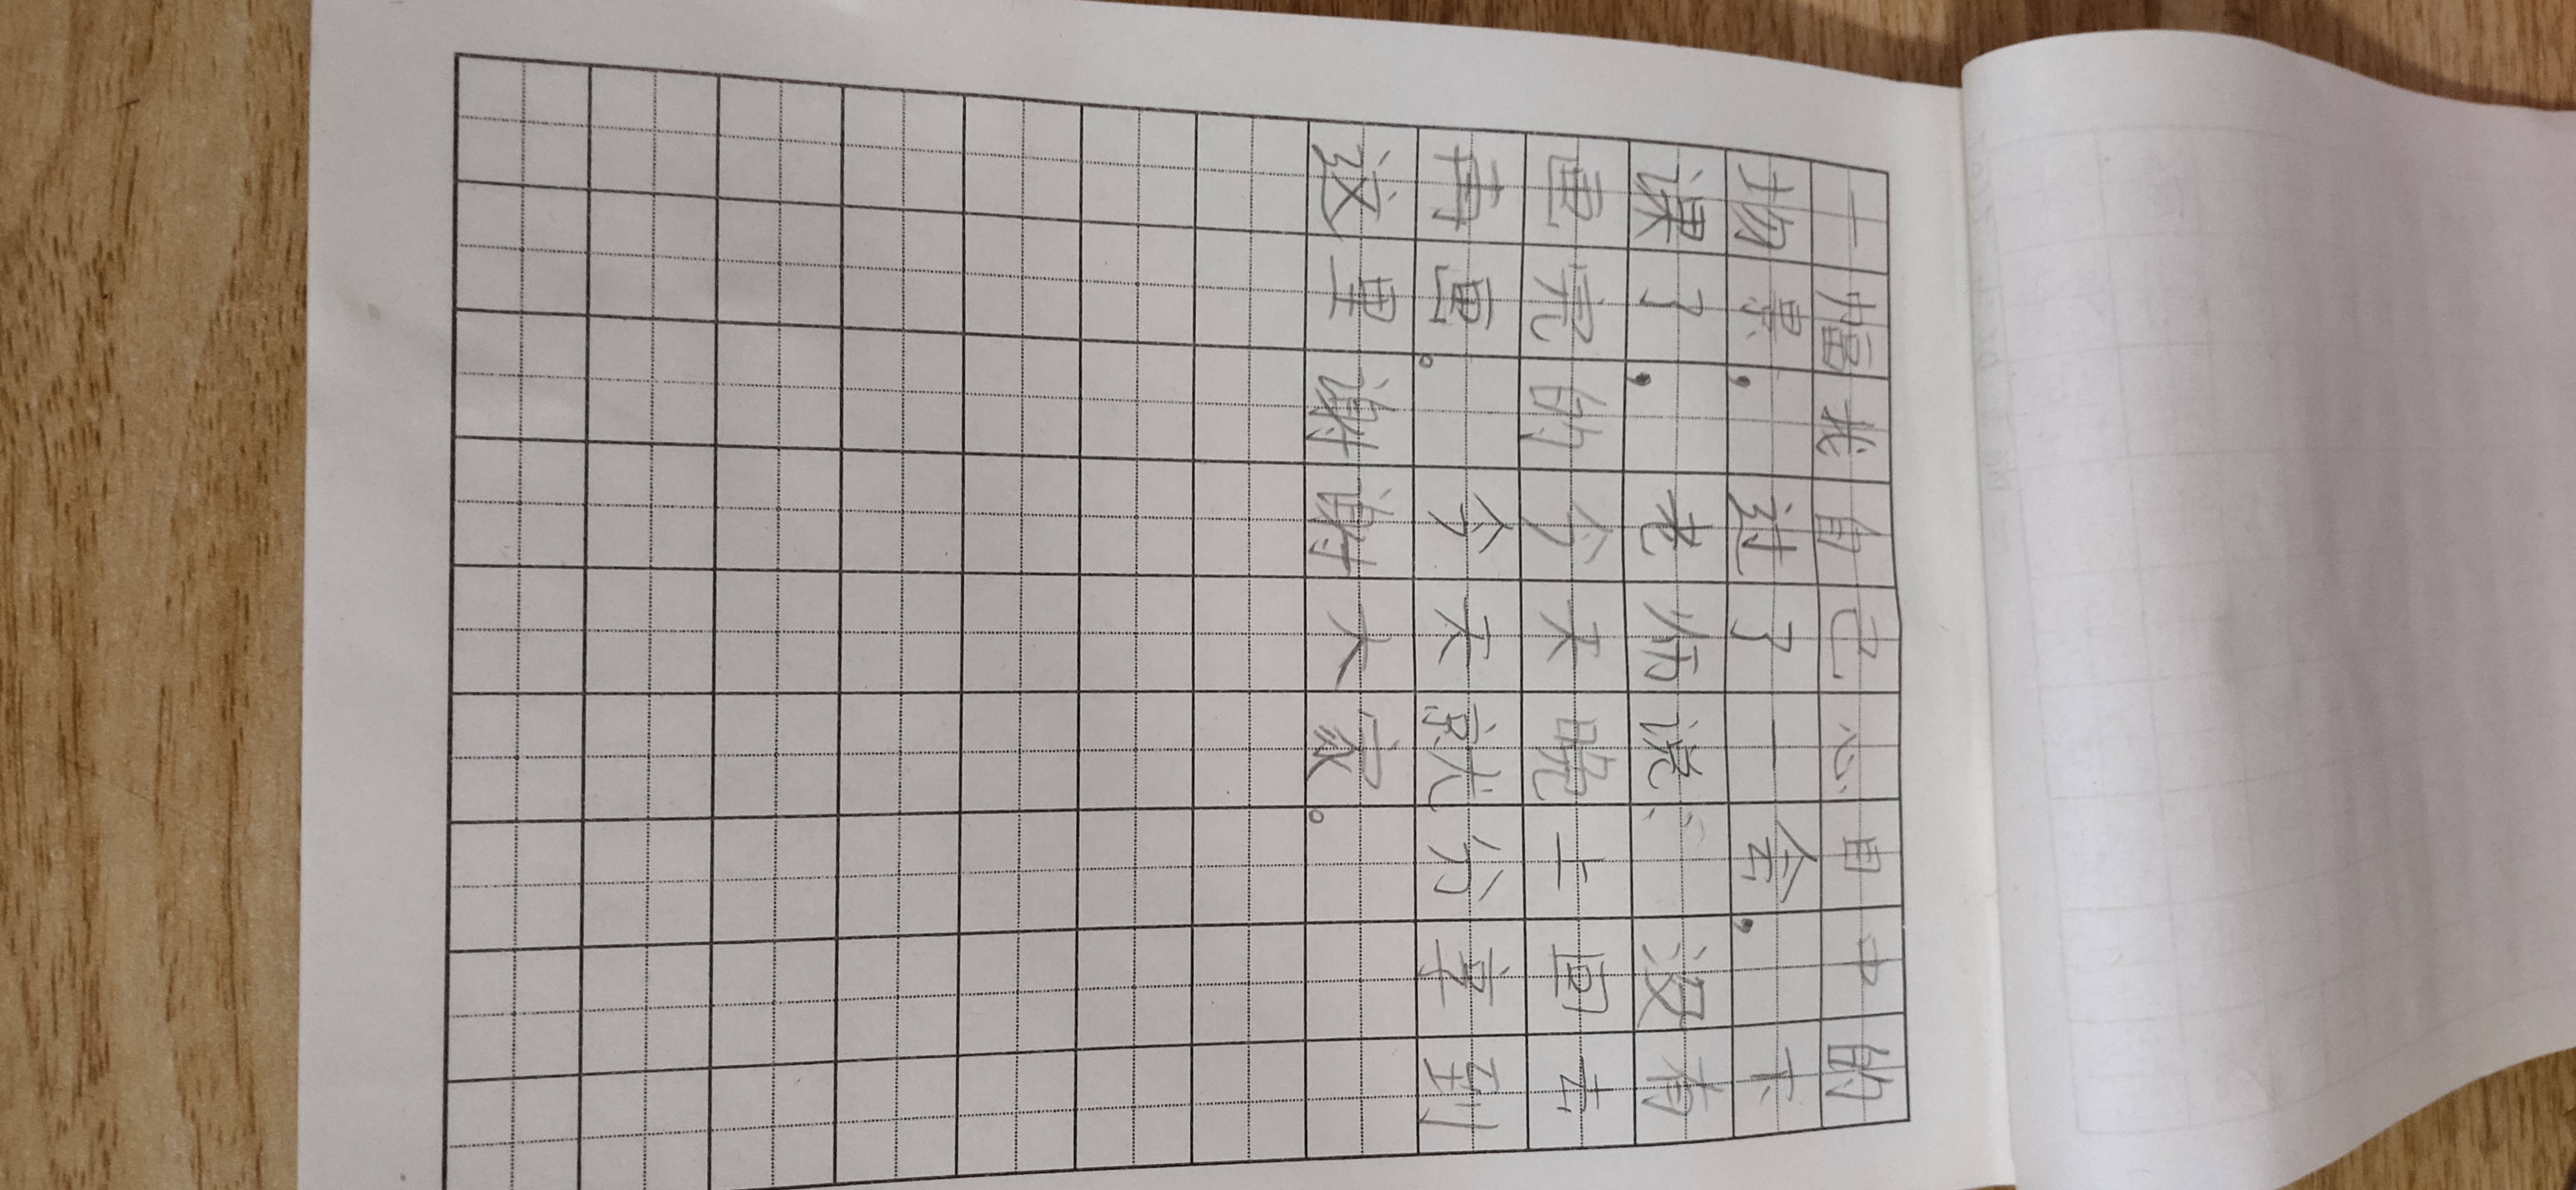 一幅我自己心目中的
场景，过了一会，下
课了，老师说：没有
画完的今天晚上回去
再画。今天就分享到
这里谢谢大家。